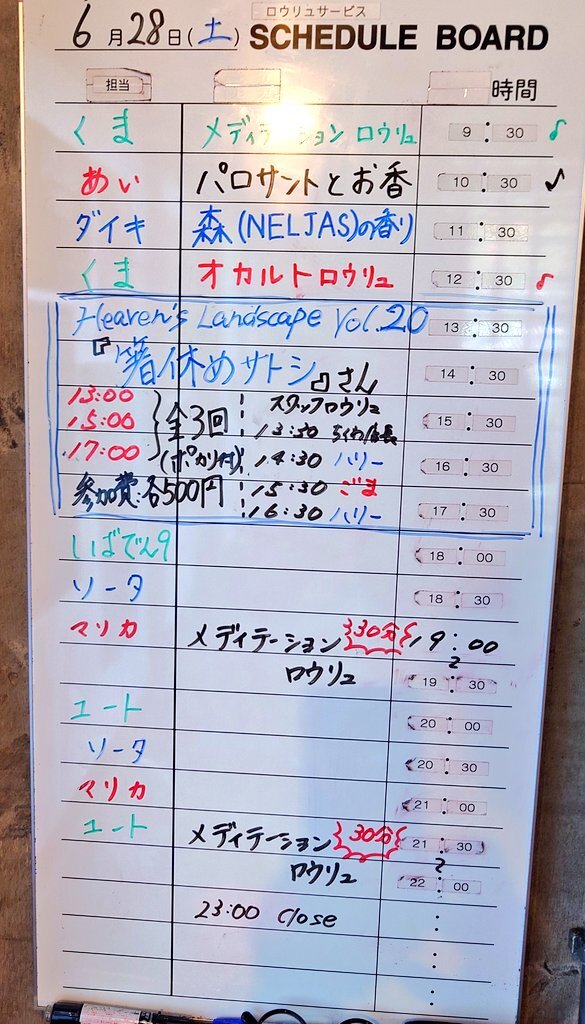 ロウリュサービス
6月28日(土) SCHEDULE BOARD
担当 時間
くま メディテーションロウリュ 9:30 ♪
めい パロサントとお香 10:30 ♪
ダイキ 森(NELJAS)の香り 11:30
くま オカルトロウリュ 12:30 ♪
Heaven's Landscape Vol.20 13:30
『箸休めサトシ』さん 14:30
13:00
15:00
17:00
全3回
(ポカリ付)
参加費:各500円
スタッフロウリュ
13:30 ちくわ店長
14:30 ハリー
15:30 ごま
16:30 ハリー
15:30
16:30
17:30
いばでん9 18:00
ソータ 18:30
マリカ メディテーションロウリュ 30分 19:00
〜
19:30
ユート 20:00
ソータ 20:30
マリカ 21:00
ユート メディテーションロウリュ 30分 21:30
〜
22:00
23:00 Close